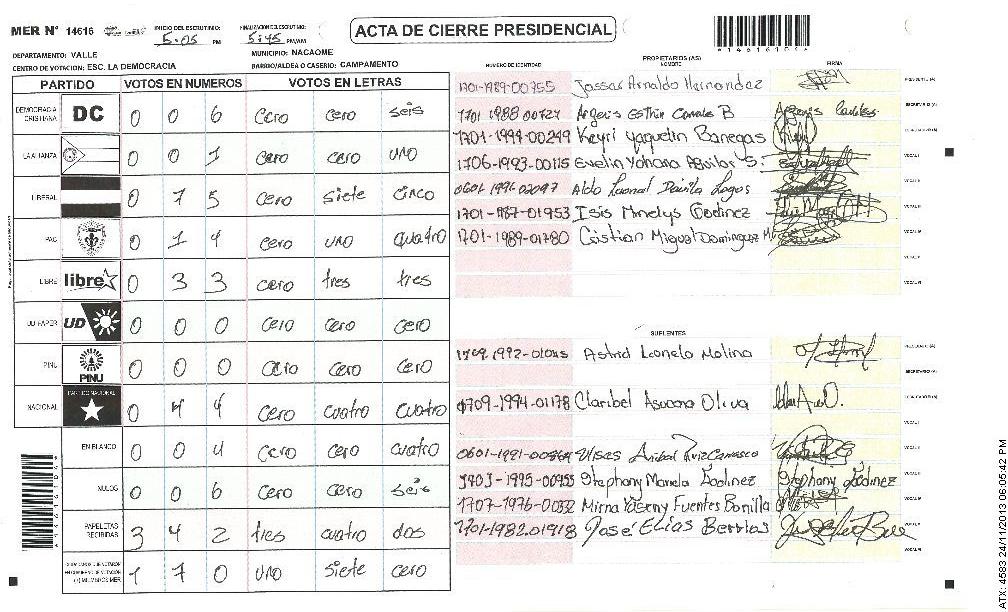 MER N° 14616
INICIO DEL ESCRUTINIO: 5:05 PM
FINALIZACION DEL ESCRUTINIO: 5:45 PM/AM
ACTA DE CIERRE PRESIDENCIAL
DEPARTAMENTO: VALLE
MUNICIPIO: NACAOME
CENTRO DE VOTACION: ESC. LA DEMOCRACIA
BARRIO/ALDEA O CASERIO: CAMPAMENTO
PARTIDO VOTOS EN NUMEROS VOTOS EN LETRAS
DEMOCRACIA CRISTIANA DC 0 0 6 cero cero seis
LA ALIANZA 0 0 1 cero cero uno
LIBERAL 0 7 5 cero siete cinco
PAC 0 1 4 cero uno quatro
LIBRE libre 0 3 3 cero tres tres
UD FAPER UD 0 0 0 cero cero cero
PINU PINU 0 0 0 cero cero cero
NACIONAL PARTIDO NACIONAL 0 4 4 cero cuatro cuatro
EN BLANCO 0 0 4 cero cero cuatro
NULOS 0 0 6 cero cero seis
PAPELETAS RECIBIDAS 3 4 2 tres cuatro dos
1 7 0 uno siete cero
PROPIETARIOS (AS)
NUMERO DE IDENTIDAD NOMBRE FIRMA
1701-1989-00755 Jossar Arnaldo Hernandez PRESIDENTE (A)
1701 1988 00727 Argenis Esthin Canales B SECRETARIO (A)
1701-1994-00249 Keyri Yaquelin Banegas
1706-1993-00115 Evelin Yohana Aguilar S. VOCAL I
Aldo Leonel Davila Lagos
1701-1987-01953 Isis Mnelys Godinez
1701-1989-01780 Cristian Miguel Dominguez M
SUPLENTES
Astrid Leonela Molina PRESIDENTE (A)
SECRETARIO (A)
0709-1994-01178 Claribel Asucena Oliva
Ulises Anibal Ruiz Carrasco
Stephany Mariela Godinez Stephany Godinez
1707-1976-00032 Mirna Yaserny Fuentes Bonilla
1701-1982-01918 Jose Elias Berrios
ATX: 4583 24/11/2013 06:05:42 PM